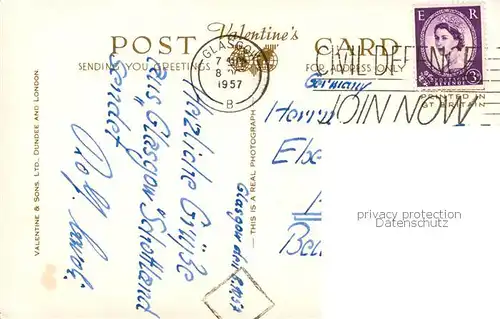 POST Valentine's CARD
SENDING YOU GREETINGS FOR ADDRESS ONLY
GLASGOW
1957
B
CIVIL DEFENCE
JOIN NOW
E R
POSTAGE REVENUE
3D
PRINTED IN
GT BRITAIN
VALENTINE & SONS, LTD., DUNDEE AND LONDON.
THIS IS A REAL PHOTOGRAPH
Glasgow den
Herzliche Grüße
aus "Glasgow" Schottland
sendet
Rolf
Germany
Herrn
Ebe
privacy protection
oldthing.com